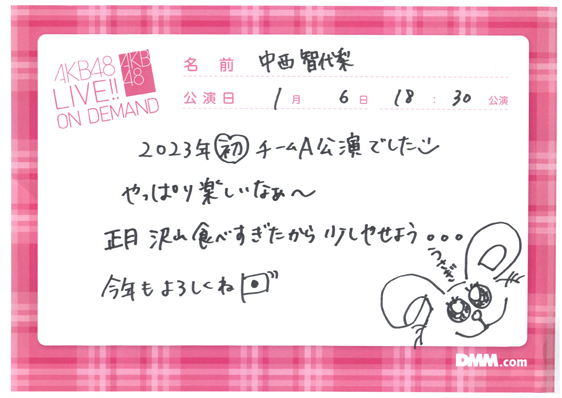 AKB48
LIVE!!
ON DEMAND
AKB
48
名前 中西智代梨
公演日 1月 6日 18:30 公演
2023年 初 チームA公演でした
やっぱり楽しいなぁ〜
正月 沢山食べすぎたから 少しやせよう。。。
今年もよろしくね
うさぎ
DMM.com